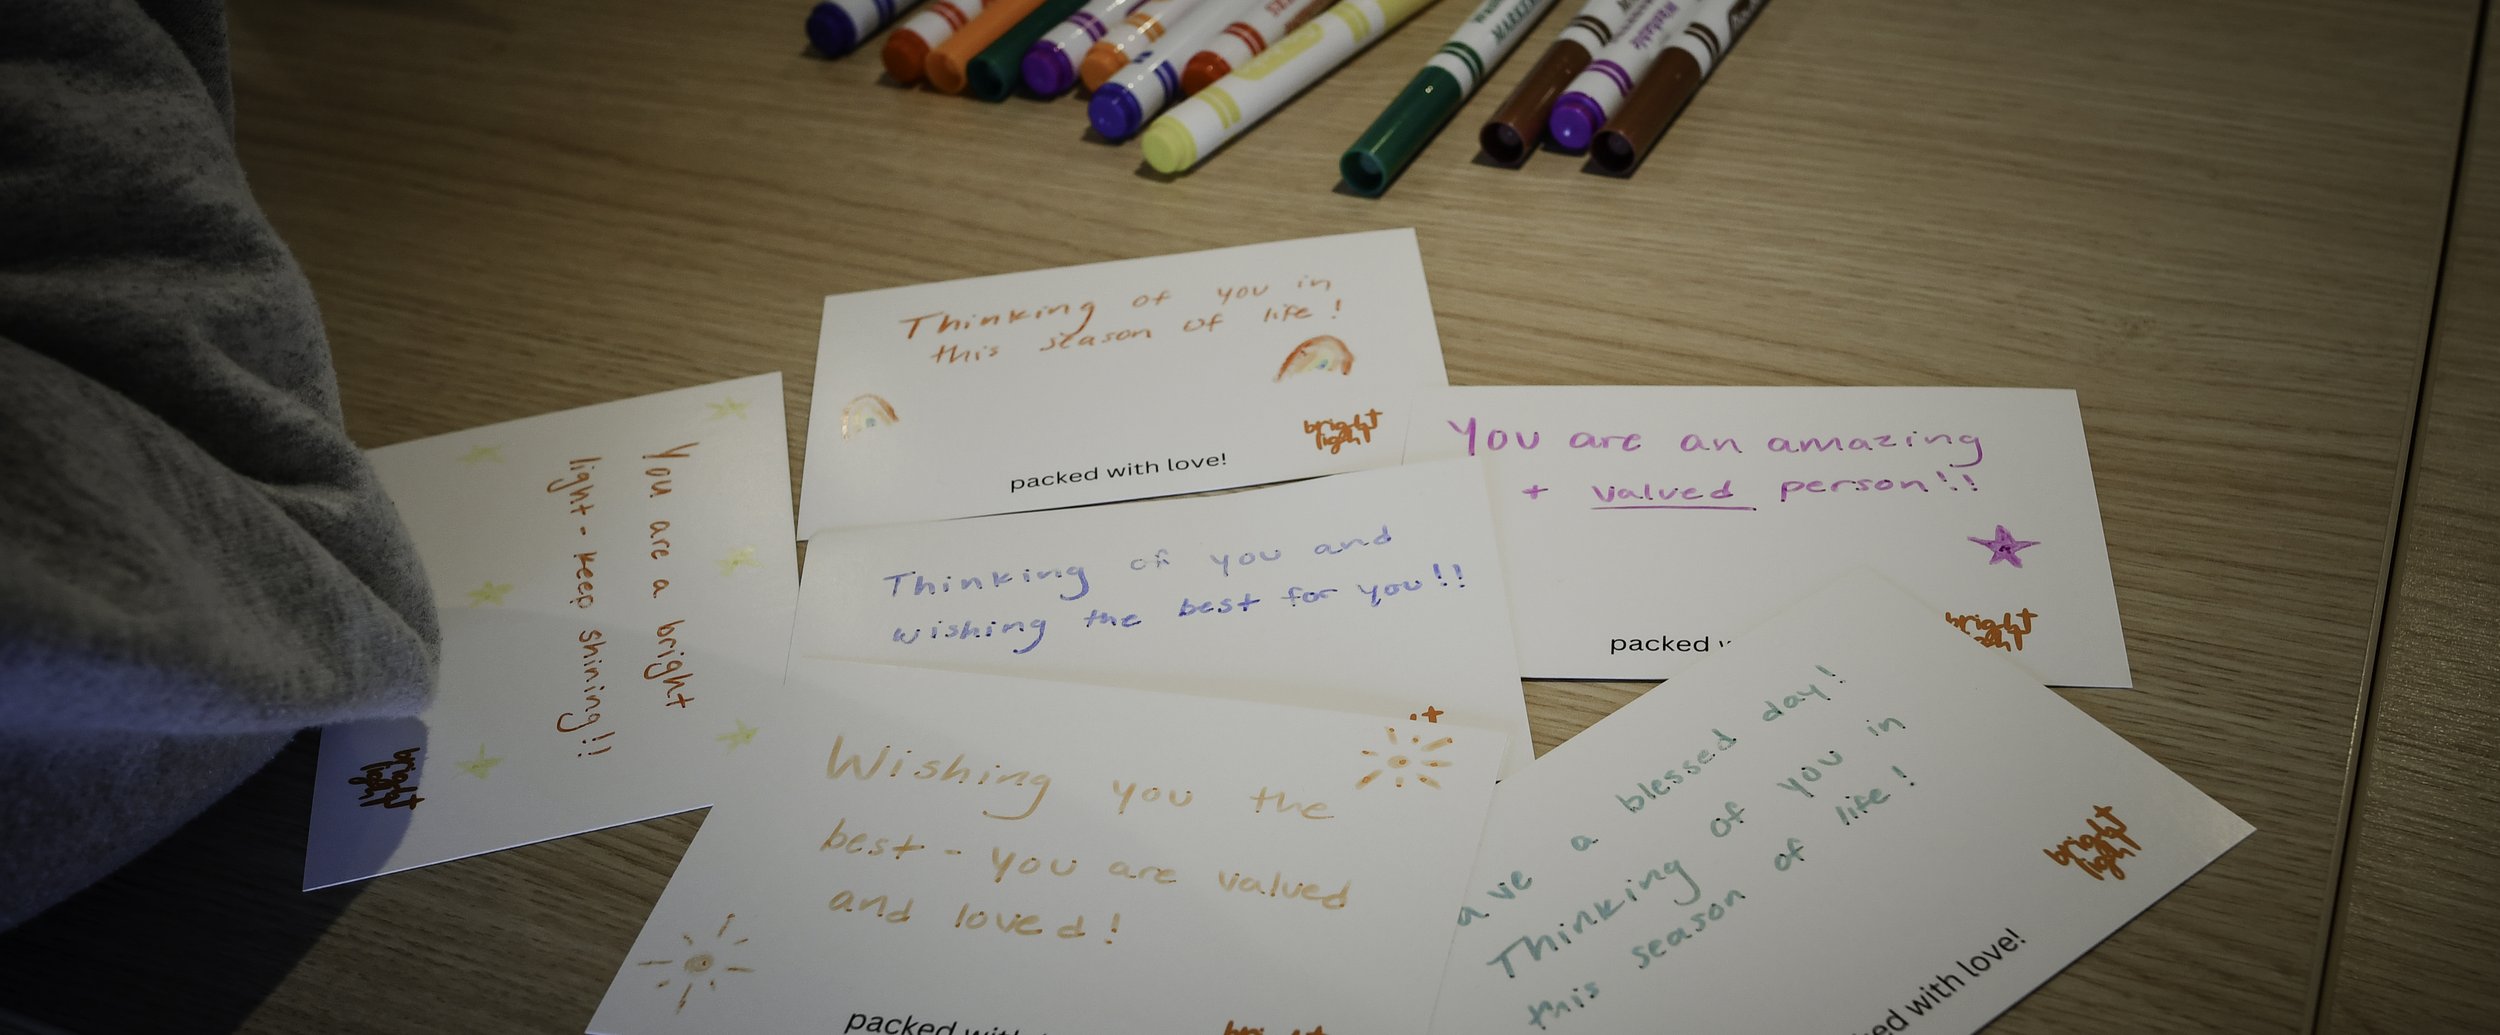 Thinking of you in
this season of life!
bright
light
packed with love!
You are an amazing
+ valued person!!
bright
light
packed
You are a bright
light - keep shining!!
bright
light
Thinking of you and
wishing the best for you!!
Wishing you the
best - you are valued
and loved!
packed
bright
ave a blessed day!
Thinking of you in
this season of life!
bright
light
ed with love!
Washable